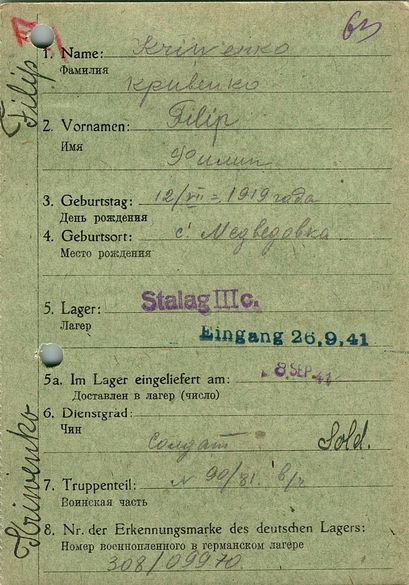 63
Filip
1. Name: Kriwenko
Фамилия
Кривенко
2. Vornamen: Filip
Имя
Филип
3. Geburtstag: 12/VII - 1919 года
День рождения
4. Geburtsort: с. Медведовка
Место рождения
5. Lager: Stalag III C.
Лагер
Eingang 26.9.41
5a. Im Lager eingeliefert am: 8. SEP. 41
Доставлен в лагер (число)
6. Dienstgrad:
Чин
Солдат Sold.
Kriwenko
7. Truppenteil: N 90/81. в/ч
Воинская часть
8. Nr. der Erkennungsmarke des deutschen Lagers:
Номер военнопленного в германском лагере
308/09970